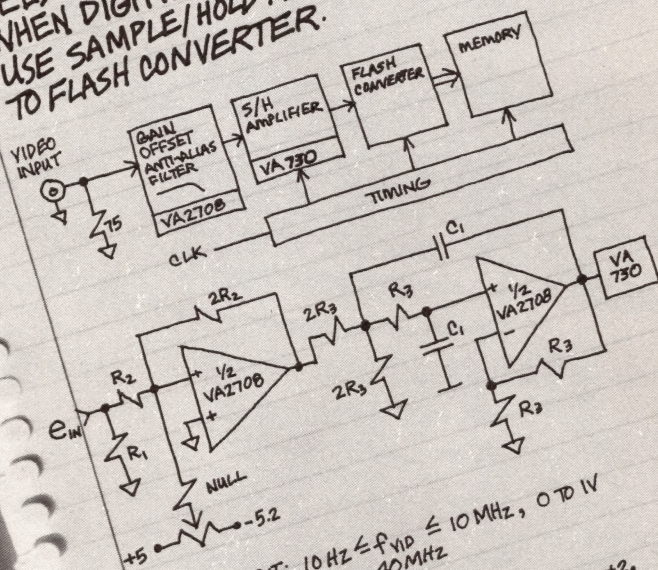 WHEN
USE SAMPLE/HOLD
TO FLASH CONVERTER.
VIDEO
INPUT
75
GAIN
OFFSET
ANTI-ALIAS
FILTER
VA2708
S/H
AMPLIFIER
VA730
FLASH
CONVERTER
MEMORY
TIMING
CLK
C1
2R2
R2
eIN
R1
1/2
VA2708
+
+
NULL
+5
-5.2
2R3
R3
2R3
C1
+
1/2
VA2708
-
R3
R3
VA
730
10 Hz ≤ fVID ≤ 10 MHz, 0 TO 1V
MHz